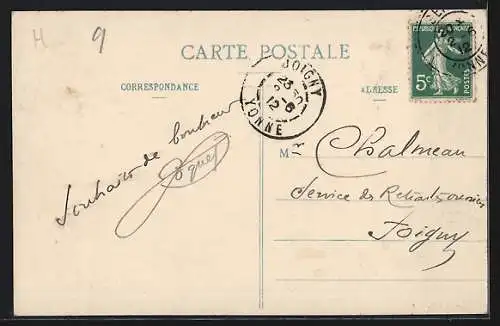 H
9
CARTE POSTALE
REPUBLIQUE FRANÇAISE
5c
POSTES
JOIGNY
23
12
YONNE
CORRESPONDANCE
ADRESSE
Souhaits de bonheur
M
Chalmeau
Service des Retraites ouvrières
Joigny